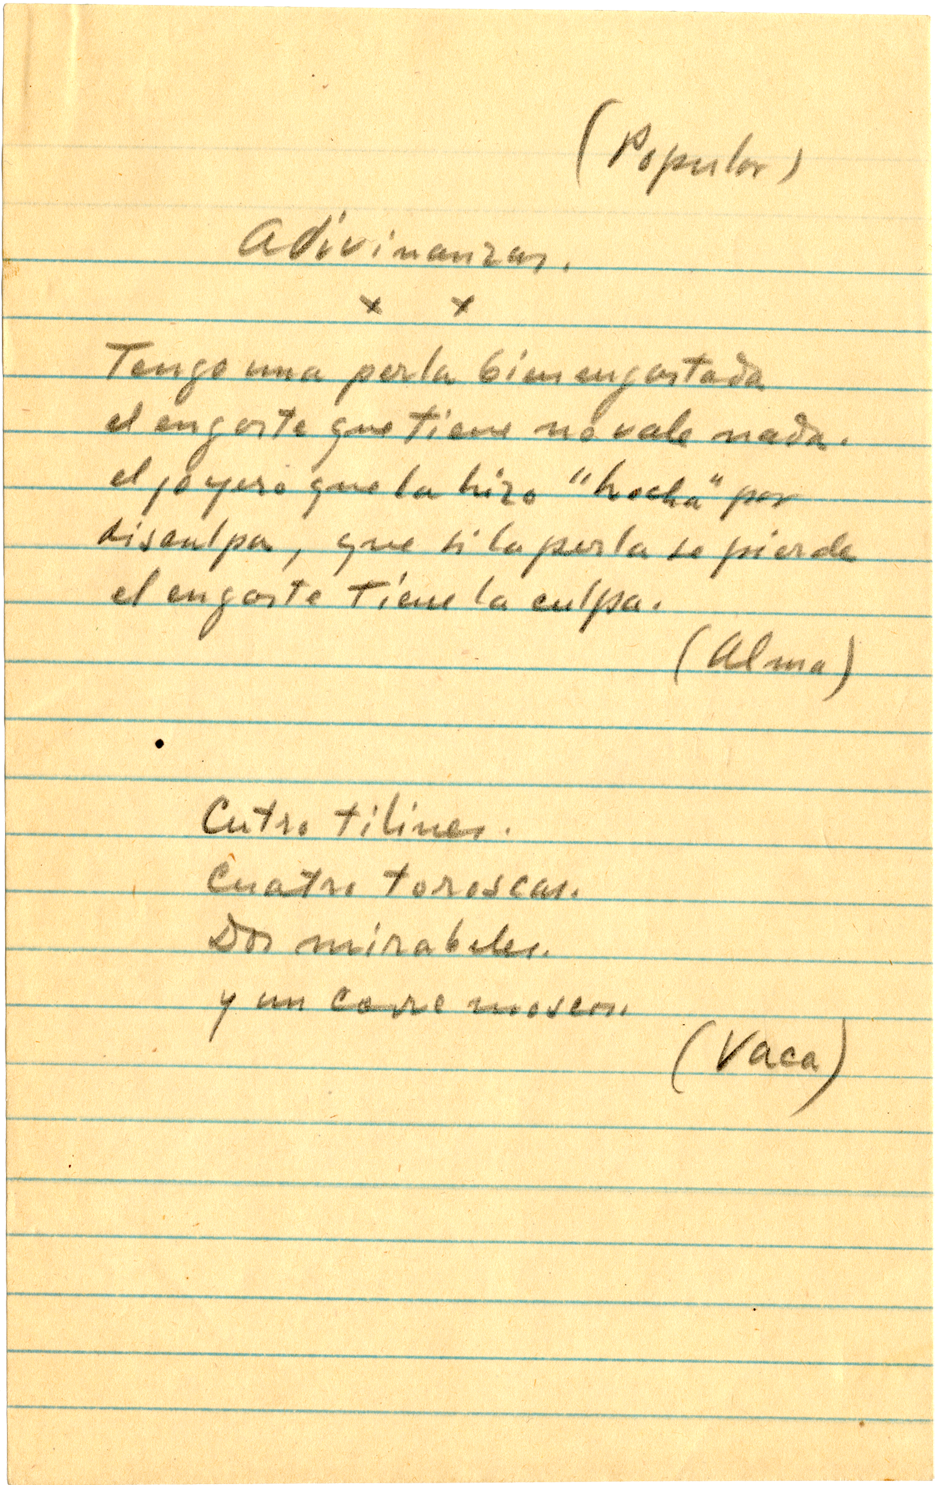 (Popular)
Adivinanzas.
x x
Tengo una perla bien engastada
el engaste que tiene no vale nada.
el joyero que la hizo "hecha" por
disculpa, que si la perla se pierde
el engaste tiene la culpa.
(Alma)
Cutro tilines.
Cuatro toroscas.
Dos mirabeles.
y un corre moscas.
(Vaca)